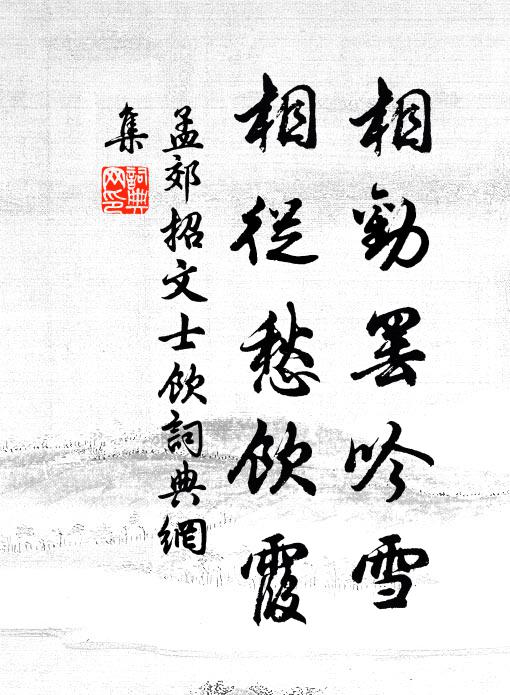 相勸罷吟雪
相從愁飲霞
孟郊招文士飲詞典網
集
詞典
网印